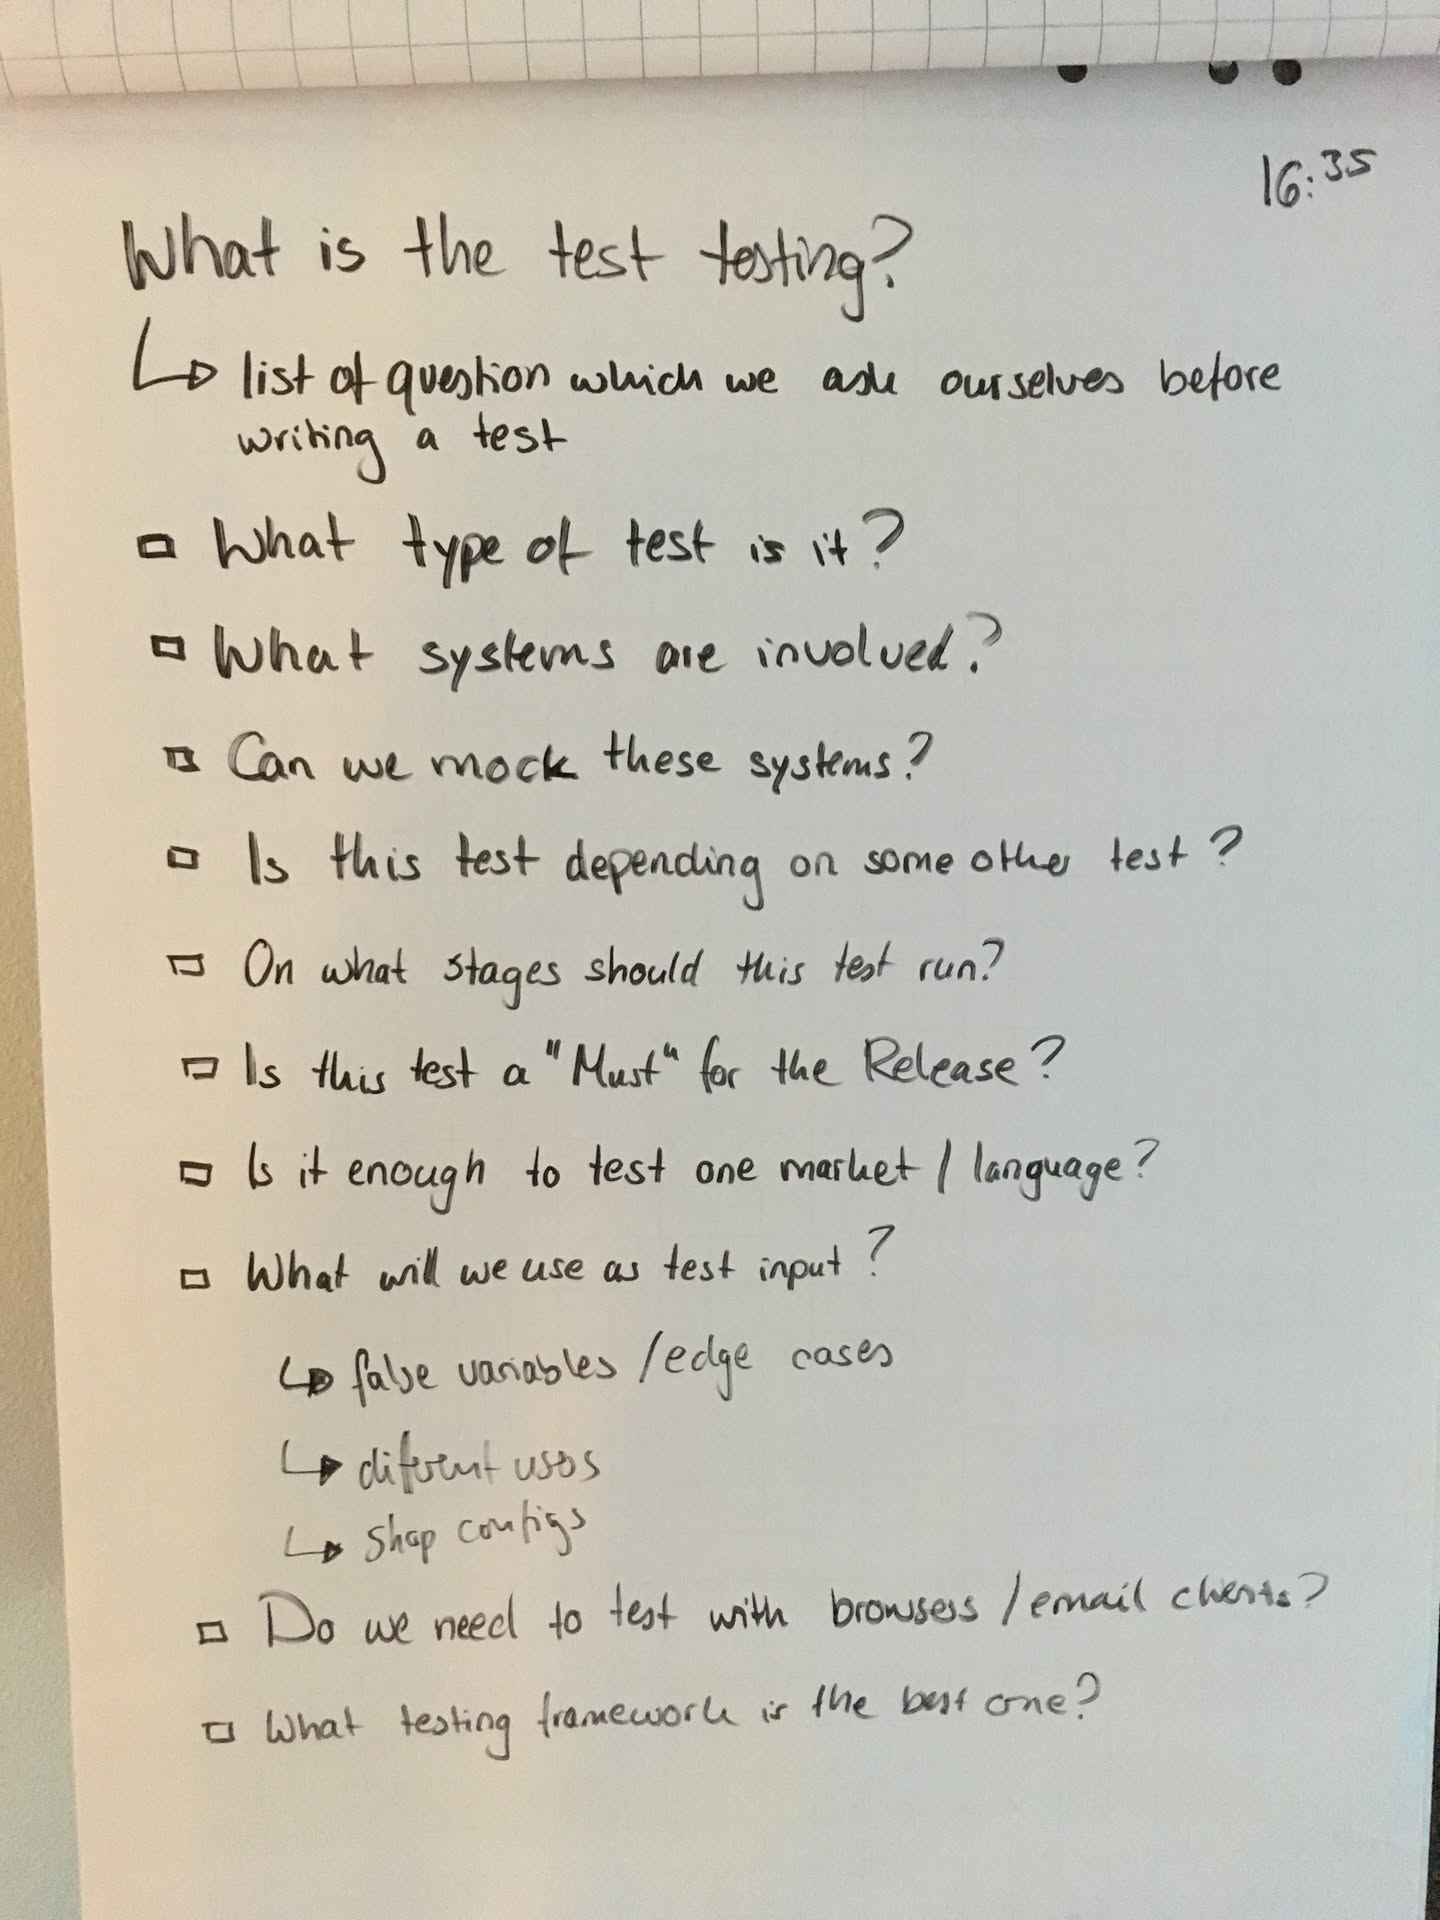 16:35
What is the test testing?
list of question which we ask ourselves before
writing a test
What type of test is it?
What systems are involved?
Can we mock these systems?
Is this test depending on some other test?
On what stages should this test run?
Is this test a "Must" for the Release?
Is it enough to test one market / language?
What will we use as test input?
false variables / edge cases
diferent
Shop configs
Do we need to test with browsers / email clients?
What testing framework is the best one?